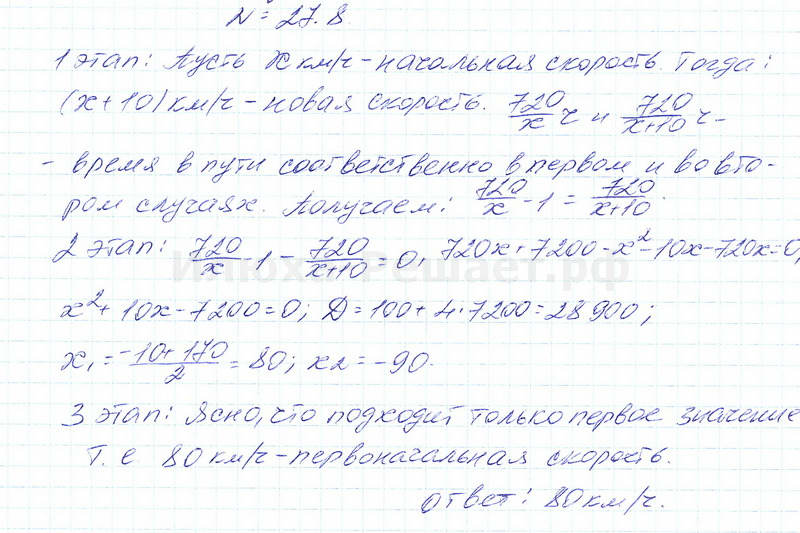 № 27.8.
1 этап: Пусть x км/ч - начальная скорость. Тогда:
(x+10) км/ч - новая скорость. 720/x ч и 720/(x+10) ч -
- время в пути соответственно в первом и во вто-
ром случаях. Получаем: 720/x - 1 = 720/(x+10).
2 этап: 720/x - 1 - 720/(x+10) = 0, 720x + 7200 - x² - 10x - 720x = 0,
ИлюхаРешает.рф
x² + 10x - 7200 = 0; Д = 100 + 4·7200 = 28900;
x₁ = (-10 + 170)/2 = 80; x2 = -90.
3 этап: Ясно, что подходит только первое значение
Т.е 80 км/ч - первоначальная скорость.
Ответ: 80 км/ч.